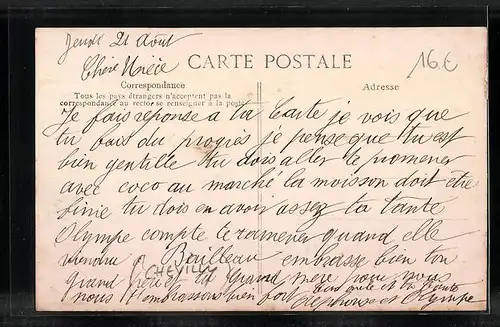 Jeudi 21 Août
16 €
Chère Nièce
CARTE POSTALE
Correspondance
Adresse
Tous les pays étrangers n'acceptent pas la
correspondance au recto se renseigner à la poste
Je fais reponse a ta Carte je vois que
tu fais du progrès je pense que tu est
bien gentille tu dois aller te promener
avec coco au marché la moisson doit être
finie tu dois en avoir assez ta tante
Olympe compte te ramener quand elle
viendra a Bailleau embrasse bien ton
grand père et ta Grand mère pour nous
CHEVILLY
nous t'embrassons bien fort ton oncle et ta tante
Alphonse et Olympe